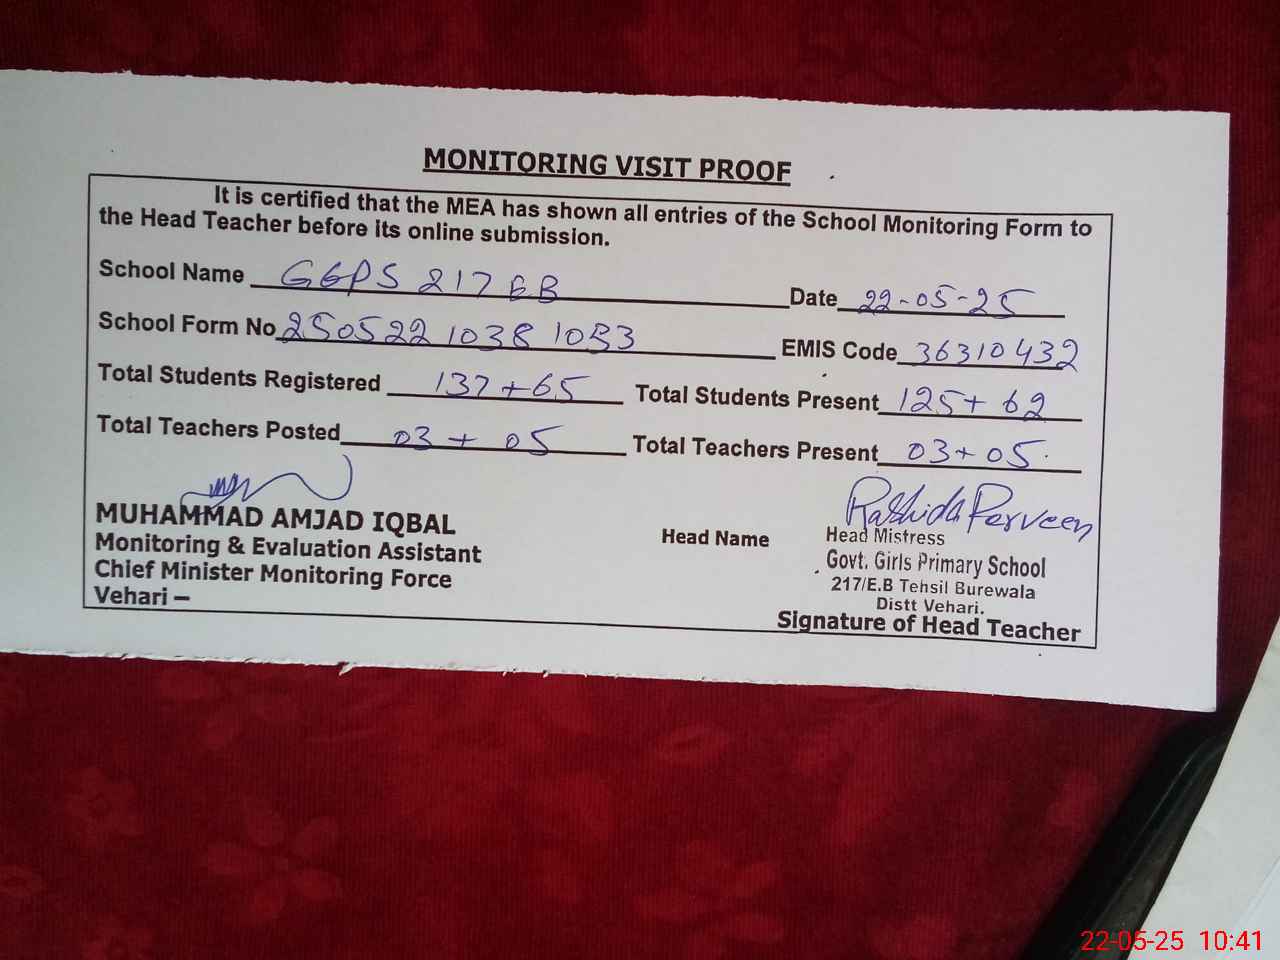 MONITORING VISIT PROOF
It is certified that the MEA has shown all entries of the School Monitoring Form to
the Head Teacher before its online submission.
School Name GGPS 217 EB Date 22-05-25
School Form No 250522 1038 1033 EMIS Code 36310432
Total Students Registered 137+65 Total Students Present 125+ 62
Total Teachers Posted 03 + 05 Total Teachers Present 03+05.
Rashida Perveen
MUHAMMAD AMJAD IQBAL
Monitoring & Evaluation Assistant
Chief Minister Monitoring Force
Vehari –
Head Name
Head Mistress
Govt. Girls Primary School
217/E.B Tehsil Burewala
Distt Vehari.
Signature of Head Teacher
22-05-25 10:41